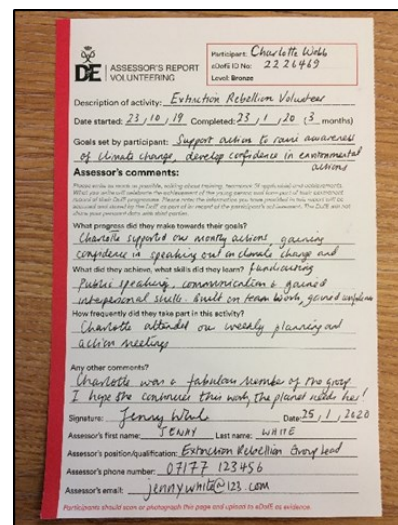 DofE
ASSESSOR'S REPORT
VOLUNTEERING
Participant: Charlotte Webb
eDofE ID No: 2226469
Level: Bronze
Description of activity: Extinction Rebellion Volunteer
Date started: 23 / 10 / 19 Completed: 23 / 1 / 20 (3 months)
Goals set by participant: Support action to raise awareness
of climate change, develop confidence in environmental
actions
Assessor's comments:
What progress did they make towards their goals?
Charlotte supported our monthly actions, gaining
confidence in speaking out on climate change and
What did they achieve, what skills did they learn? fundraising
Public speaking, communication & gained
interpersonal skills. Built on team work, gained confidence
How frequently did they take part in this activity?
Charlotte attended our weekly planning and
action meetings
Any other comments?
Charlotte was a fabulous member of the group
I hope she continues this work, the planet needs her!
Signature: Jenny White Date: 25 / 1 / 2020
Assessor's first name: JENNY Last name: WHITE
Assessor's position/qualification: Extinction Rebellion Group Lead
Assessor's phone number: 07177 123456
Assessor's email: jennywhite@123.com
Participants should scan or photograph this page and upload to eDofE as evidence.